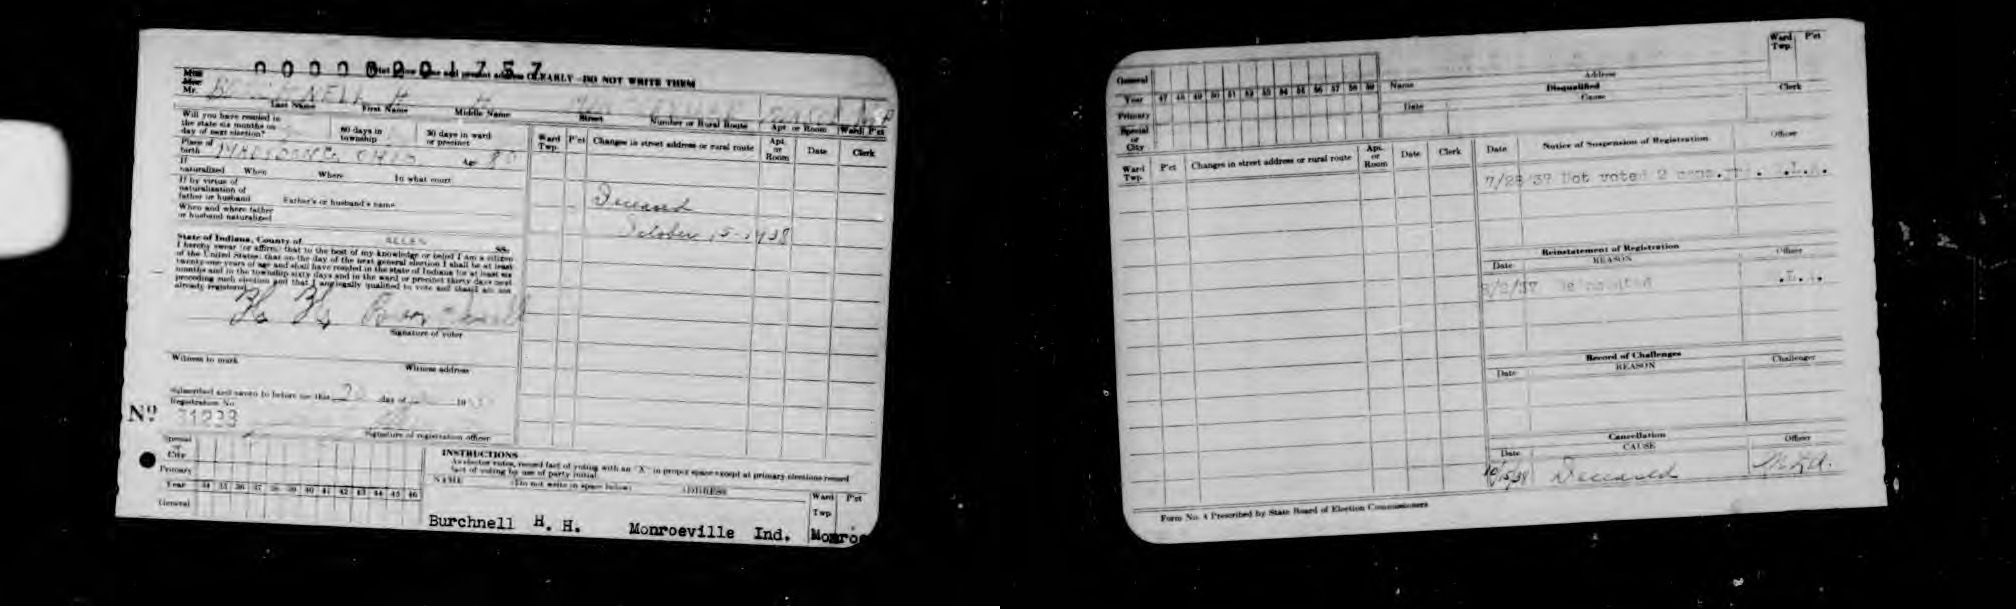 0000000001757
Print your name and present address CLEARLY—DO NOT WRITE THEM
Miss
Mrs.
Mr. BURCHNELL H H
Last Name First Name Middle Name Street Number or Rural Route Apt. or Room Ward P'ct
Will you have resided in
the state six months on
day of next election?
60 days in
township
30 days in ward
or precinct
Place of
birth OHIO Age
If
naturalized When Where In what court
If by virtue of
naturalization of
father or husband
Father's or husband's name
When and where father
or husband naturalized
State of Indiana, County of ALLEN ss.
I hereby swear (or affirm) that to the best of my knowledge or belief I am a citizen
of the United States; that on the day of the next general election I shall be at least
twenty-one years of age and shall have resided in the state of Indiana for at least six
months and in the township sixty days and in the ward or precinct thirty days next
preceding such election and that I am legally qualified to vote and that I am not
already registered.
H. H. Burchnell
Signature of voter
Witness to mark
Witness address
Subscribed and sworn to before me this 20 day of 19
Registration No.
Nº 31223
Signature of registration officer
Ward
Twp. P'ct Changes in street address or rural route Apt.
or
Room Date Clerk
Deceased
October 15-1938
Special
or
City
Primary
Year 34 35 36 37 38 39 40 41 42 43 44 45 46
General
INSTRUCTIONS
As elector votes, record fact of voting with an "X" in proper space except at primary elections record
fact of voting by use of party initial.
NAME (Do not write in space below) ADDRESS
Ward
Twp. P'ct
Burchnell H. H. Monroeville Ind. Monroe
General
Year 47 48 49 50 51 52 53 54 55 56 57 58 59
Primary
Special
or
City
Name Address
Ward
Twp. P'ct
Disqualified
Date Cause Clerk
Ward
Twp. P'ct Changes in street address or rural route Apt.
or
Room Date Clerk
Date Notice of Suspension of Registration Officer
7/28/37 Not voted 2
Reinstatement of Registration
Date REASON Officer
8/2/37 Reinstated
Record of Challenges
Date REASON Challenger
Cancellation
Date CAUSE Officer
10/15/38 Deceased
Form No. 4 Prescribed by State Board of Election Commissioners